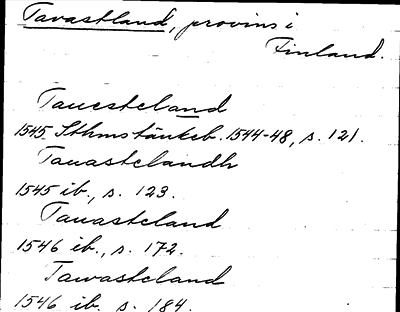 Tavastland, provins i
Finland.
Tauesteland
1545 Sthmstänkeb. 1544-48, s. 121.
Tauastelandh
1545 ib., s. 123.
Tauasteland
1546 ib., s. 172.
Tawasteland
1546 ib. s. 184.